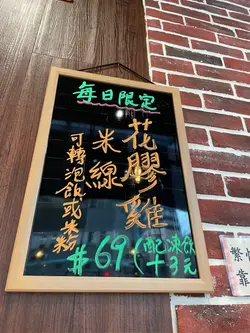 每日限定
花膠雞
米線
可轉泡飯或米粉
#69(配凍飲
+3元
繁忙
靠